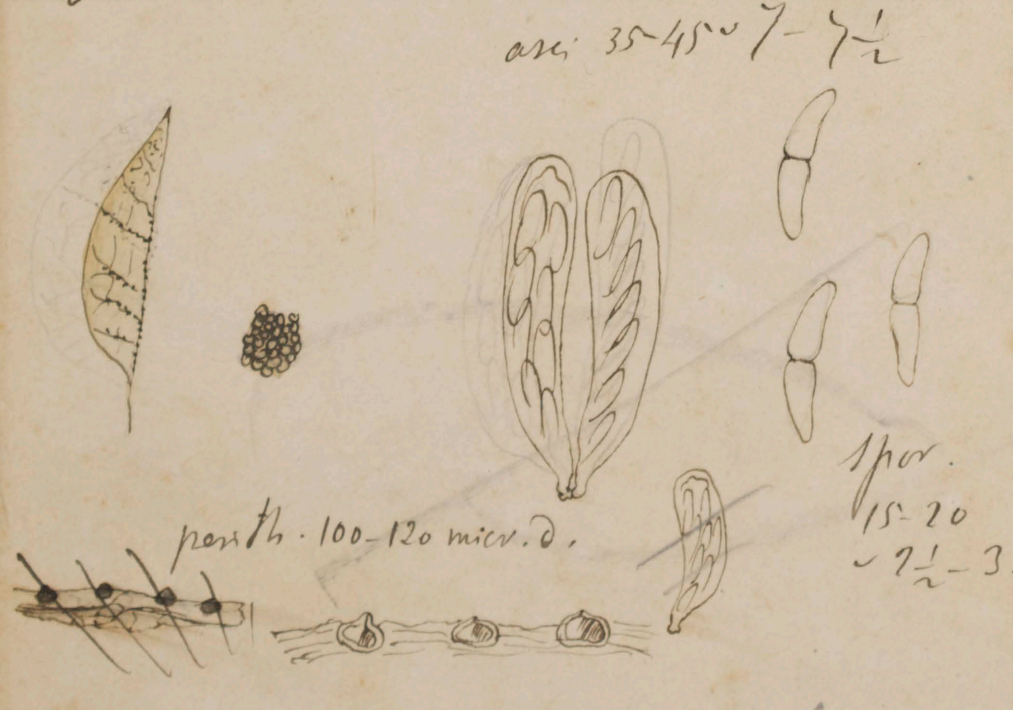 asci 35-45 ⌣ 7 - 7 1/2
spor.
15-20
⌣ 2 1/2 - 3
perith. 100-120 micr. d.